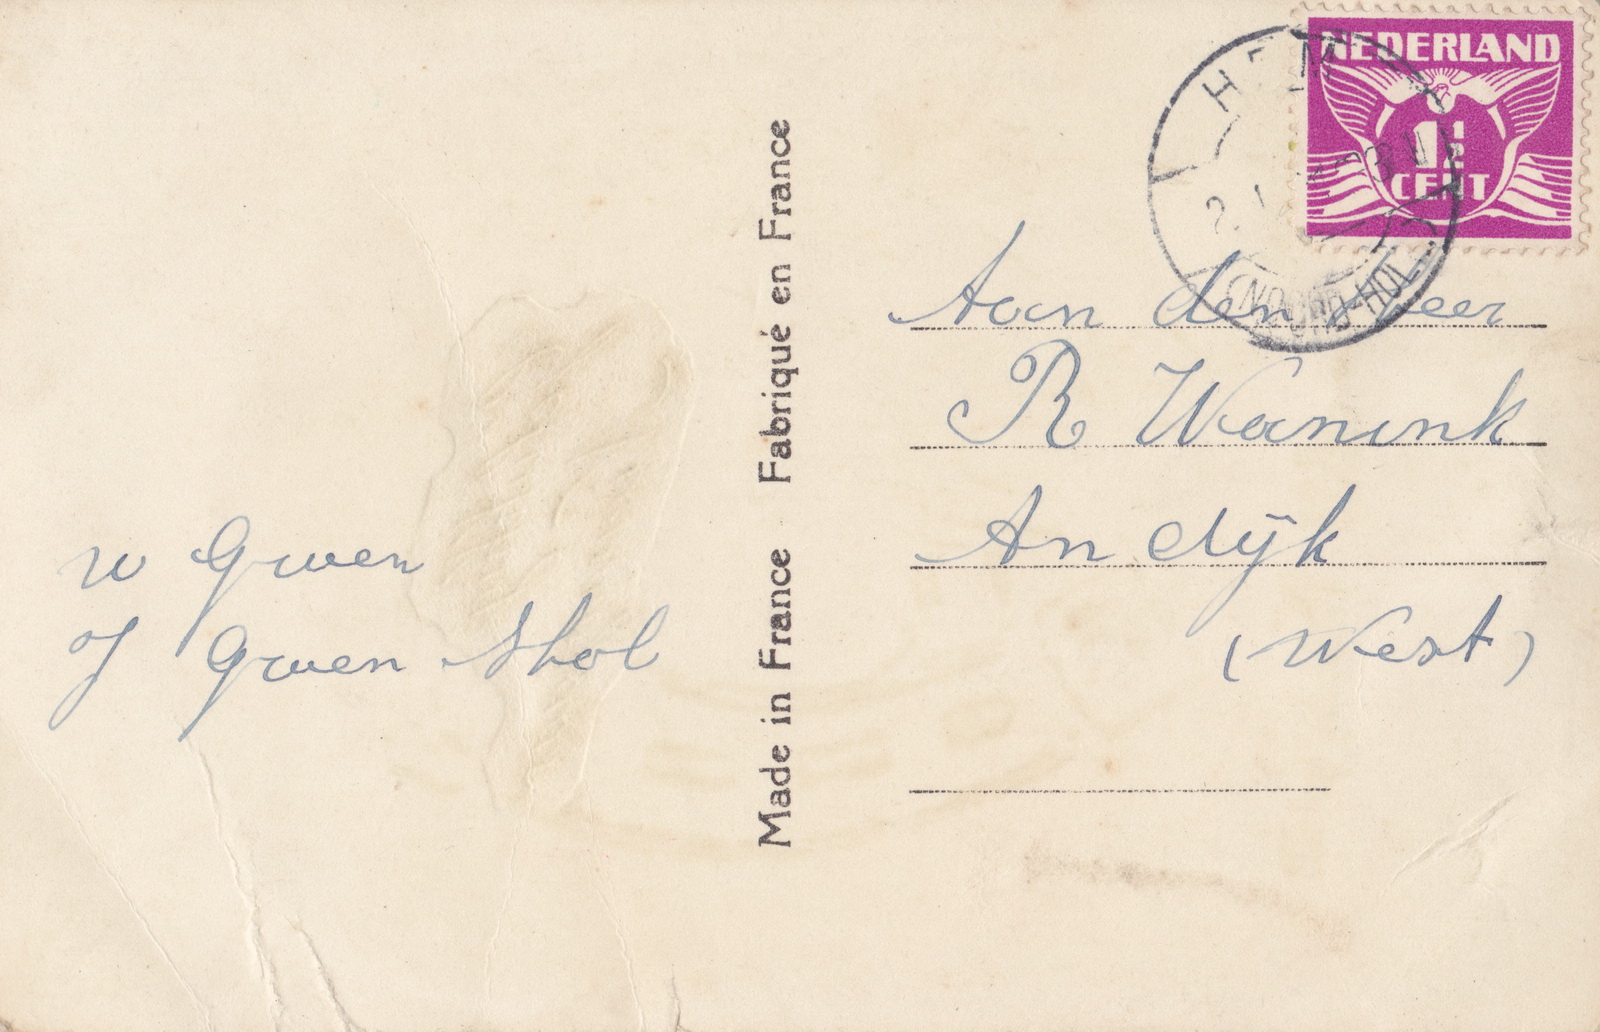 NEDERLAND
1½
CENT
HEM
(NOORD-HOL
Made in France Fabriqué en France
Aan den Heer
R Wanink
Andijk
(West)
W Groen
J Groen Stol